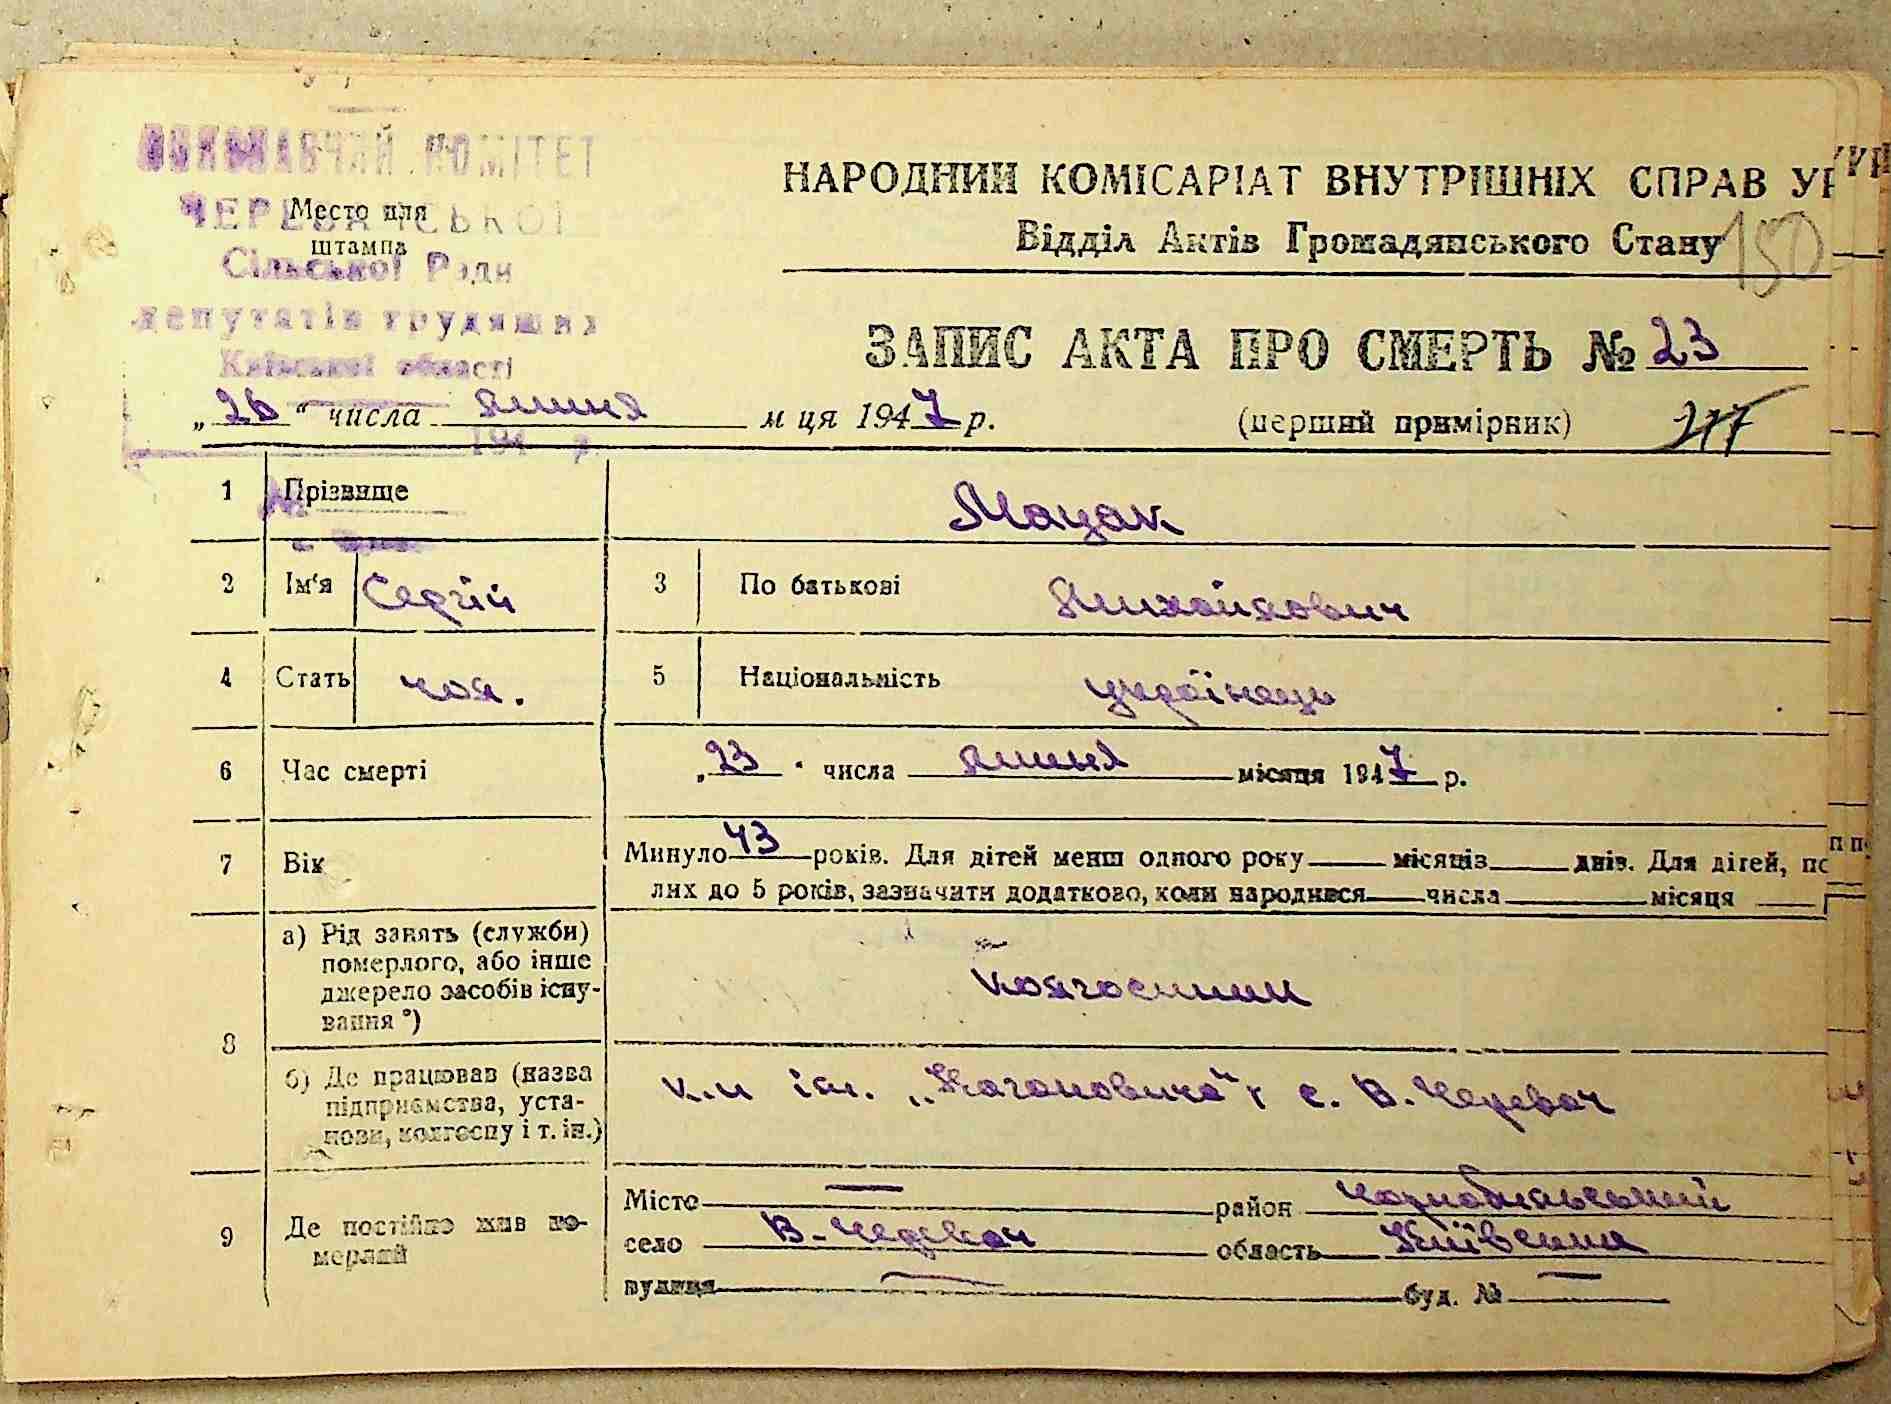 ВИКОНАВЧИЙ КОМІТЕТ
ЧЕРЕВАЧСЬКОЇ
Сільської Ради
депутатів трудящих
Київської області
194 р.
Место для
штампа
НАРОДНИЙ КОМІСАРІАТ ВНУТРІШНІХ СПРАВ УР
Відділ Актів Громадянського Стану
150
ЗАПИС АКТА ПРО СМЕРТЬ № 23
„26“ числа липня м ця 1947 р.
(перший примірник)
217
1 Прізвище Мацак
2 Ім‘я Сергій 3 По батькові Михайлович
4 Стать чол. 5 Національність українець
6 Час смерті „23“ числа липня місяця 1947 р.
7 Вік Минуло 43 років. Для дітей менш одного року — місяців — днів. Для дітей, по
лих до 5 років, зазначити додатково, коли народився — числа — місяця —
8 а) Рід занять (служби)
померлого, або інше
джерело засобів існу-
вання *)
Колгоспник
б) Де працював (назва
підприємства, уста-
нови, колгоспу і т. ін.)
к-п ім. „Кагановича“ с. В. Черевач
9 Де постійно жив по-
мерлий
Місто — район Чорнобильський
село В-Черевач область Київська
вулиця — буд. № —